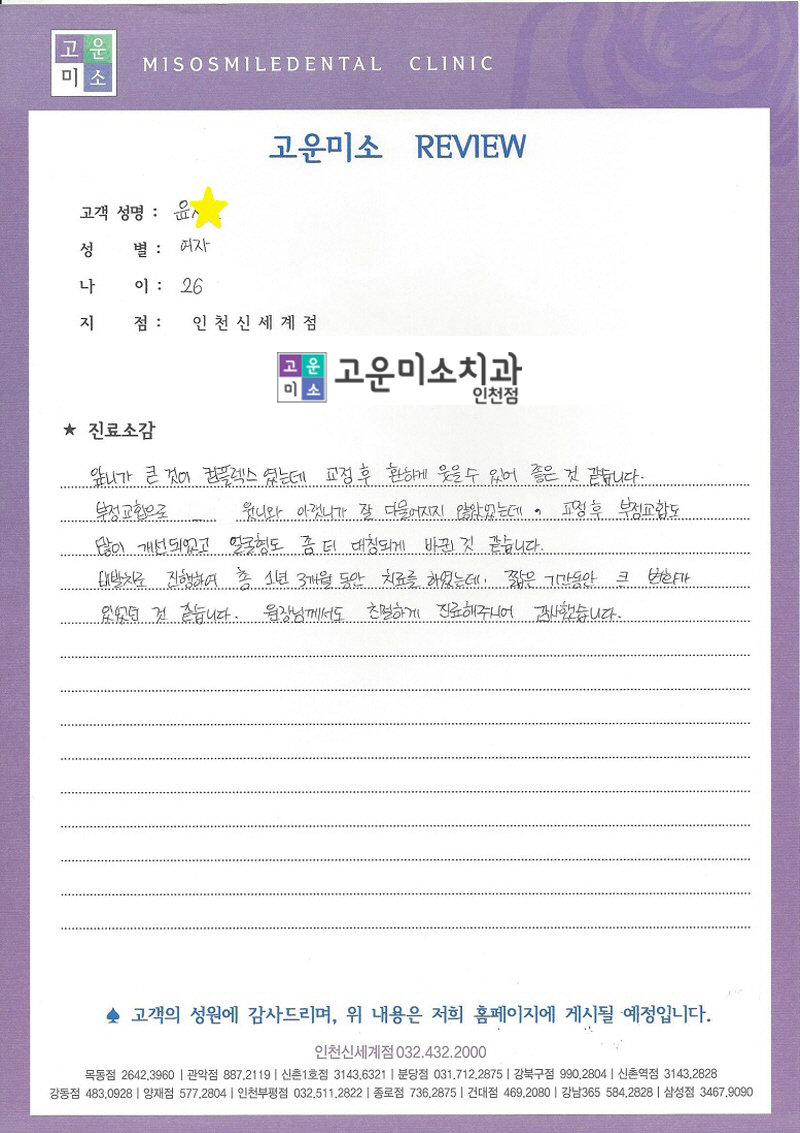 고운
미소
MISOSMILEDENTAL CLINIC
고운미소 REVIEW
고객 성명 : 윤
성 별 : 여자
나 이 : 26
지 점 : 인천신세계점
고운
미소
고운미소치과
인천점
★ 진료소감
앞니가 큰 것이 컴플렉스였는데 교정 후 환하게 웃을 수 있어 좋은 것 같습니다.
부정교합으로 윗니와 아랫니가 잘 다물어지지 않았었는데, 교정 후 부정교합도
많이 개선되었고 얼굴형도 좀 더 대칭되게 바뀐 것 같습니다.
진행하여 총 1년 3개월 동안 치료를 하였는데. 짧은 기간동안 큰 변화가
있었던 것 같습니다. 원장님께서도 친절하게 진료해주시어 감사했습니다.
♠ 고객의 성원에 감사드리며, 위 내용은 저희 홈페이지에 게시될 예정입니다.
인천신세계점 032.432.2000
목동점 2642.3960 | 관악점 887.2119 | 신촌1호점 3143.6321 | 분당점 031.712.2875 | 강북구점 990.2804 | 신촌역점 3143.2828
강동점 483.0928 | 양재점 577.2804 | 인천부평점 032.511.2822 | 종로점 736.2875 | 건대점 469.2080 | 강남365 584.2828 | 삼성점 3467.9090